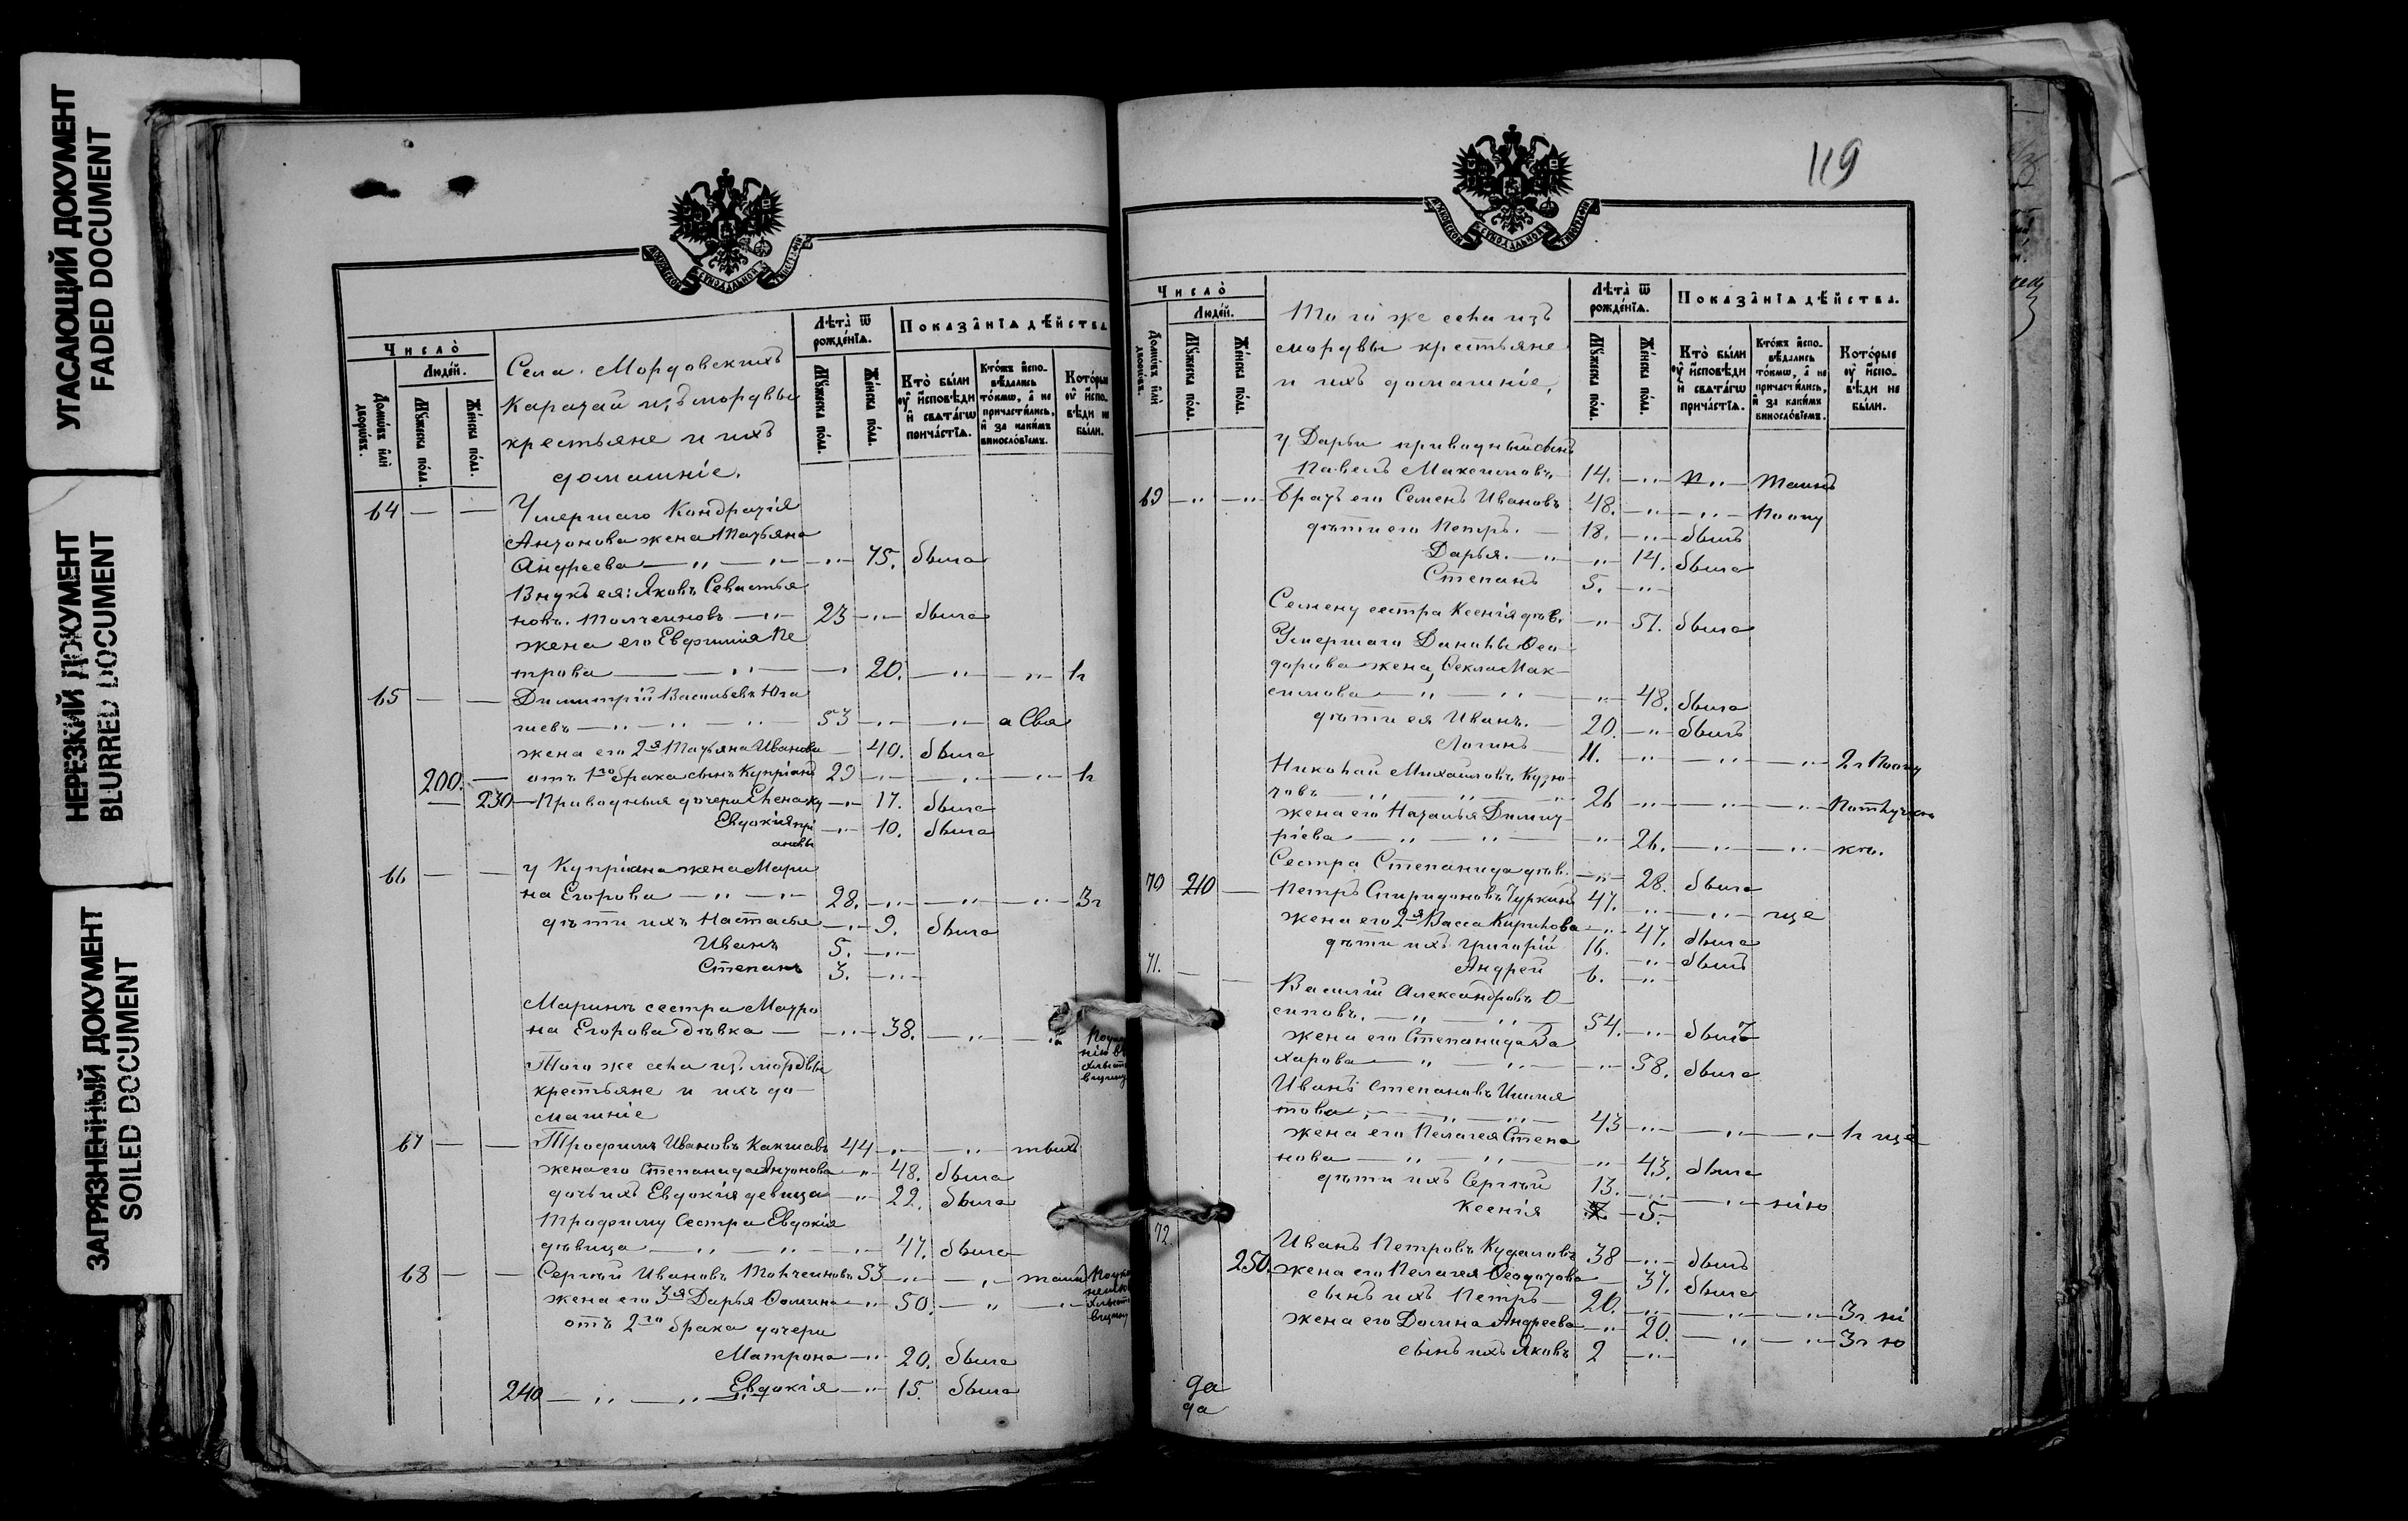 УГАСАЮЩИЙ ДОКУМЕНТ
FADED DOCUMENT
НЕРЕЗКИЙ ДОКУМЕНТ
BLURRED DOCUMENT
ЗАГРЯЗНЕННЫЙ ДОКУМЕНТ
SOILED DOCUMENT
Число̀
Людей.
Домѡвъ или дворѡвъ.
Мꙋжеска пола.
Женска пола.
Села Мордовскихъ
Каратай изъ мордвы
крестьяне и ихъ
домашніе.
Лѣта ѿ рожденїѧ.
Мꙋжеска пола.
Женска пола.
Показанїѧ дѣйства
Кто были ꙋ исповѣди и свѧтагѡ причастїѧ.
Ктожъ исповѣдались токмѡ, а не причастились, и за какимъ винословїемъ.
Которые ꙋ исповѣди не были.
64 — — Умершаго Кондратія
Антонова жена Татьяна
Андреева — 75. была
Внукъ ея: Яковъ Севастья
новъ Толченновъ — 23 — была
жена его Евфимія Пе
трова — 20. — 1 г
65 — — Димитрій Васильевъ Юга
шевъ — 53 — а Свя
жена его 2я Татьяна Иванова — 40. была
200. — отъ 1го брака сынъ Купріанъ 29 — 1 г
— 230 — Приводныя дочери Елена — 17. была
Евдокія — 10. была
66 — — у Купріана жена Мари
на Егорова — 28. — 3 г
дѣти ихъ Настасья — 9. была
Иванъ 5. —
Степанъ 3. —
Маринѣ сестра Матро
на Егорова дѣвка — 38. —
Того же села изъ мордвы
крестьяне и ихъ до-
машніе
67 — — Трофимъ Ивановъ Какшавъ 44 — твихъ
жена его Степанида Антонова — 48. была
дочь ихъ Евдокія девица — 22. была
Трофиму Сестра Евдокія
дѣвица — 47. была
68 — — Сергѣй Ивановъ Толченновъ 53 —
жена его 3я Дарья Фомина — 50. —
отъ 2го брака дочери
Матрона — 20. была
240 — Евдокія — 15. была
119
Число̀
Людей.
Домѡвъ или дворѡвъ.
Мꙋжеска пола.
Женска пола.
Того же села изъ
мордвы крестьяне
и ихъ домашніе,
Лѣта ѿ рожденїѧ.
Мꙋжеска пола.
Женска пола.
Показанїѧ дѣйства.
Кто были ꙋ исповѣди и свѧтагѡ причастїѧ.
Ктожъ исповѣдались токмѡ, а не причастились, и за какимъ винословїемъ.
Которые ꙋ исповѣди не были.
у Дарьи приводный сынъ
Павелъ Максимовъ 14. — Таинъ
69 — — Братъ его Семенъ Ивановъ 48. —
дѣти его Петръ. — 18. — былъ
Дарья. — 14. была
Степанъ 5. —
Семену сестра Ксенія дѣв. — 51. была
Умершаго Данилы Ѳео
дорова жена, Ѳекла Мак-
симова — 48. была
дѣти ея Иванъ. — 20. — былъ
Логинъ — 11. — 2 г
Николай Михайловъ Кузю-
товъ — 26 —
жена его Наталья Димит
ріева — 26. —
Сестра Степанида дѣв. — 28. была
70 210 — Петръ Спиридоновъ Чуркинъ 47. — ще
жена его 2я Васса Кирилова — 47. была
дѣти ихъ Григорій 16. — былъ
Андрей 6. —
71. — — Василій Александровъ О-
сиповъ. — 54. — былъ
жена его Степанида За
харова — 58. была
Иванъ Степановъ
това — 43 — 1 г ще
жена его Пелагея Степа
нова — 43. была
дѣти ихъ Сергѣй 13. — нію
Ксенія — 5.
72. Иванъ Петровъ Кудашовъ 38 — былъ
250. жена его Пелагея Ѳеодотова — 37. была
сынъ ихъ Петръ — 20. — 3 г ні
жена его Домна Андреева — 20. — 3 г ю
сынъ ихъ Яковъ 2 —
да
да